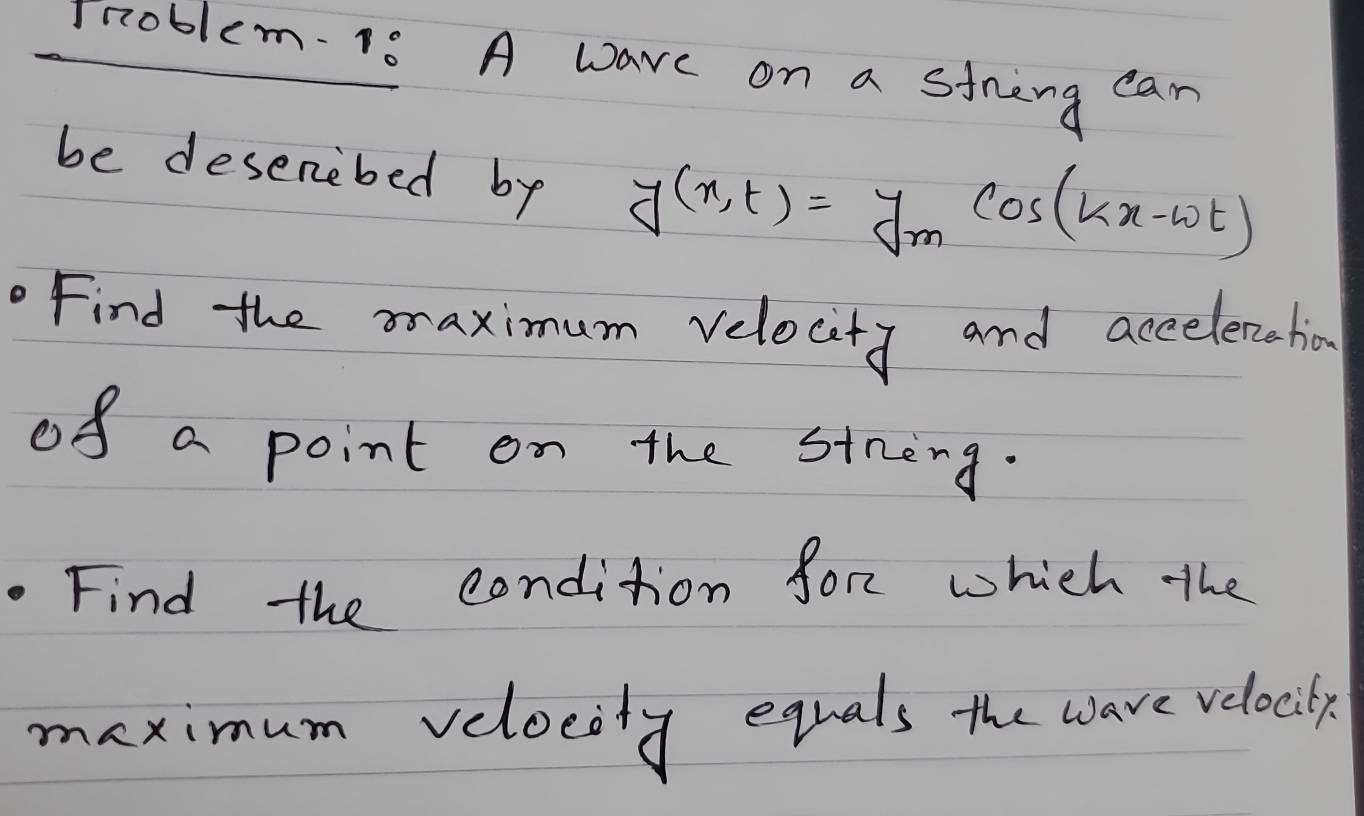 Problem-1: A wave on a string can
be described by y(x,t) = y_m cos(kx-ωt)
• Find the maximum velocity and acceleration
of a point on the string.
• Find the condition for which the
maximum velocity equals the wave velocity.